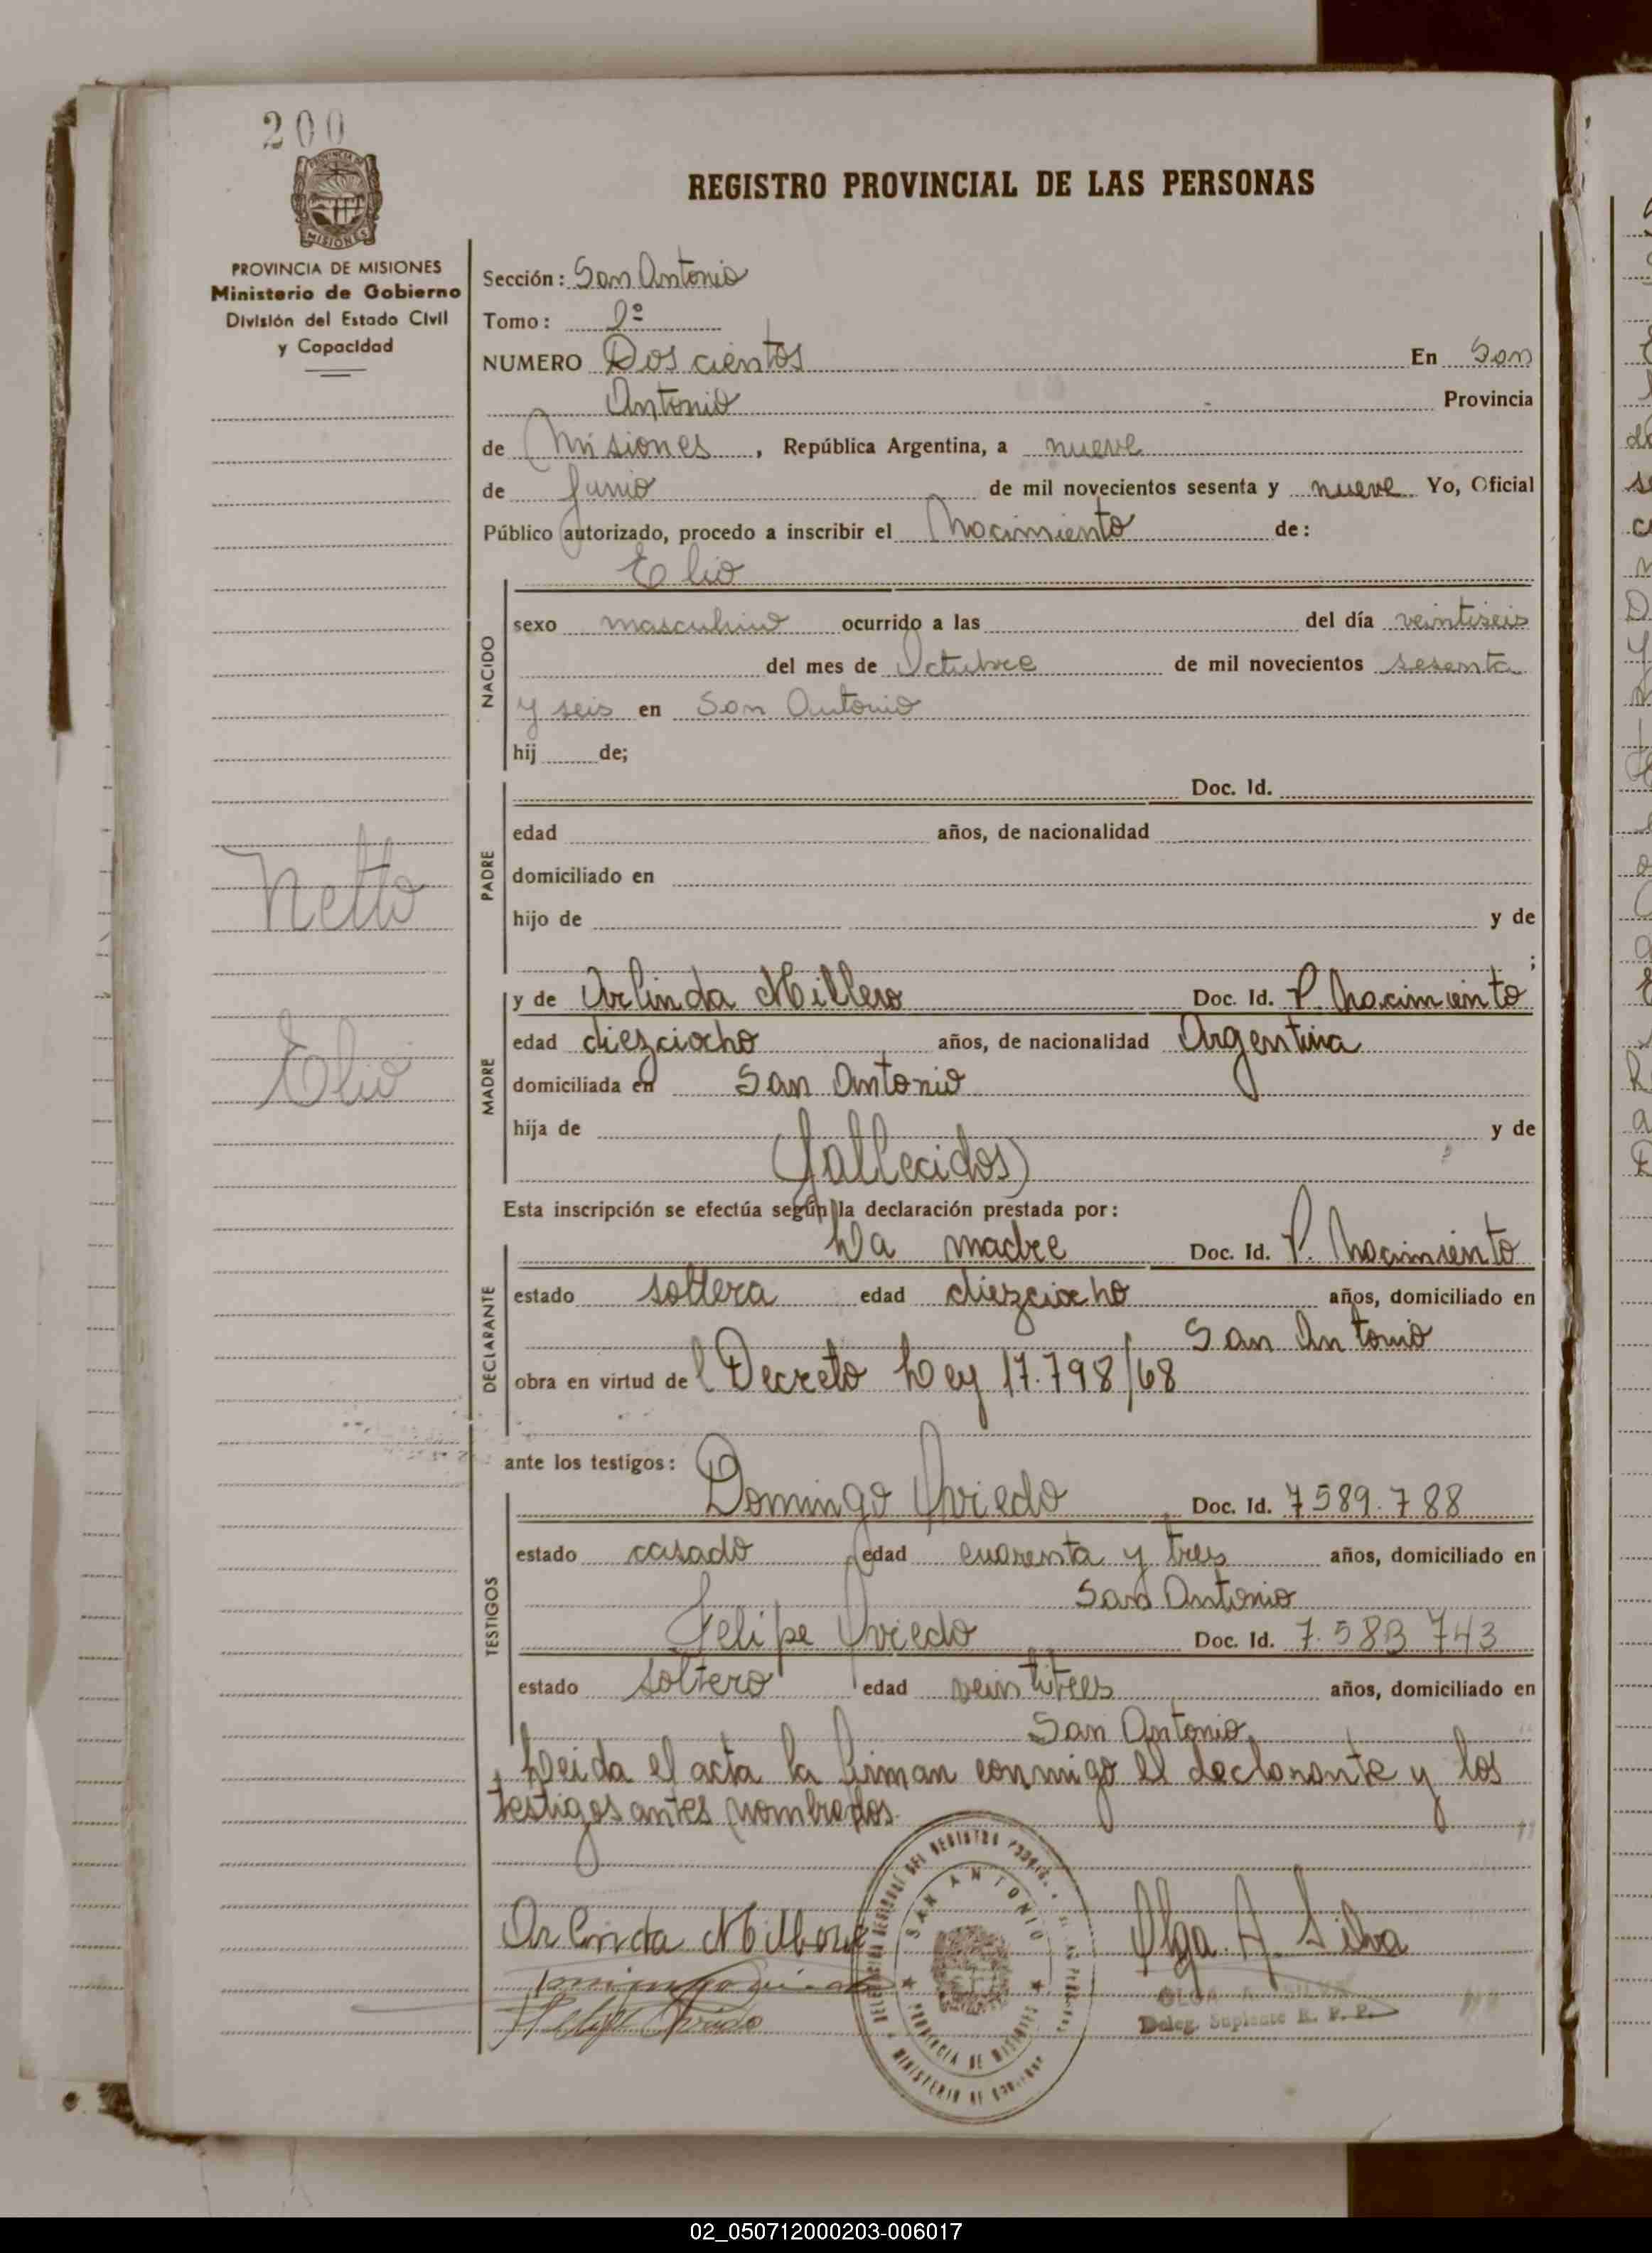 200
PROVINCIA DE MISIONES
Ministerio de Gobierno
División del Estado Civil
y Capacidad
REGISTRO PROVINCIAL DE LAS PERSONAS
Sección: San Antonio
Tomo: 1º
NUMERO Dos cientos En San
Antonio Provincia
de Misiones, República Argentina, a nueve
de Junio de mil novecientos sesenta y nueve Yo, Oficial
Público autorizado, procedo a inscribir el Nacimiento de:
Elio
NACIDO
sexo masculino ocurrido a las del día veintiseis
del mes de Octubre de mil novecientos sesenta
y seis en San Antonio
hij de;
PADRE
Doc. Id.
edad años, de nacionalidad
domiciliado en
hijo de y de
;
Netto
Elio
MADRE
y de Arlinda Millero Doc. Id. P. Nacimiento
edad diezciocho años, de nacionalidad Argentina
domiciliada en San Antonio
hija de y de
(fallecidos)
Esta inscripción se efectúa según la declaración prestada por:
DECLARANTE
La madre Doc. Id. P. Nacimiento
estado soltera edad diezciocho años, domiciliado en
San Antonio
obra en virtud del Decreto Ley 17.798/68
ante los testigos:
TESTIGOS
Domingo Oviedo Doc. Id. 7589.788
estado casado edad cuarenta y tres años, domiciliado en
San Antonio
Felipe Oviedo Doc. Id. 7.583 743
estado soltero edad veintitres años, domiciliado en
San Antonio
Leida el acta la firman conmigo el declarante y los
testigos antes nombrados.
Arlinda Millero
Olga A. Silva
Felipe Oviedo
OLGA A. SILVA
Deleg. Suplente R. P. P.
SAN ANTONIO
PROVINCIA DE MISIONES
MINISTERIO DE GOBIERNO
02_050712000203-006017